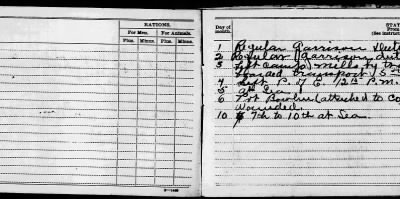 RATIONS.
For Men.
For Animals.
Plus.
Minus.
Plus.
Minus.
3—1469
Day of month.
STAT
(See instruc
1 Regular Garrison Dut
2 Regular Garrison dut
3 Left Camp Mills by tra
boarded transport 5
4 Left P. of E. 12th P.M.
5 At Sea
6 Pvt (attached to Co
Wounded.
10 7th to 10th at Sea.